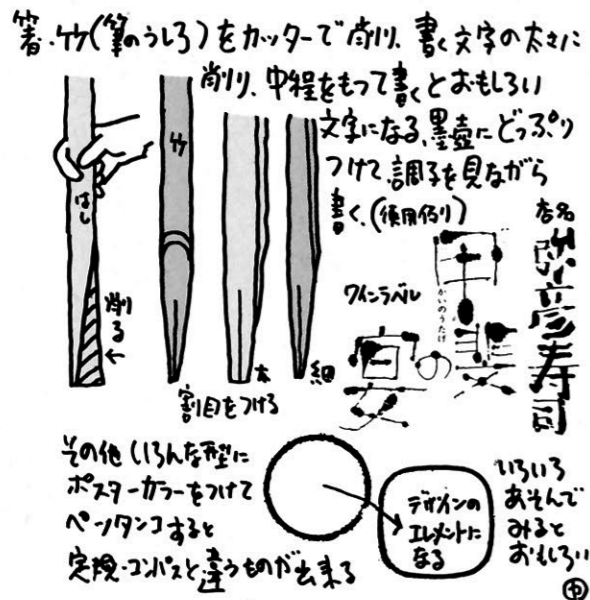 箸・竹(筆のうしろ)をカッターで削り、書く文字の太さに
削り、中程をもって書くとおもしろい
文字になる、墨壺にどっぷり
つけて、調子を見ながら
書く、(使用例り)
はし
竹
削る
太
細
割目をつける
ワインラベル
甲斐の宴
かいのうたげ
店名
弥彦寿司
その他いろんな型に
ポスターカラーをつけて
ペッタンコすると
定規・コンパスと違うものが出来る
デザインの
エレメントに
なる
いろいろ
あそんで
みると
おもしろい